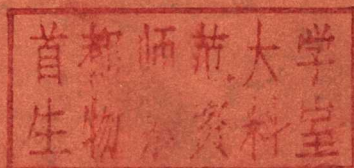 首都师范大学
生物系资料室